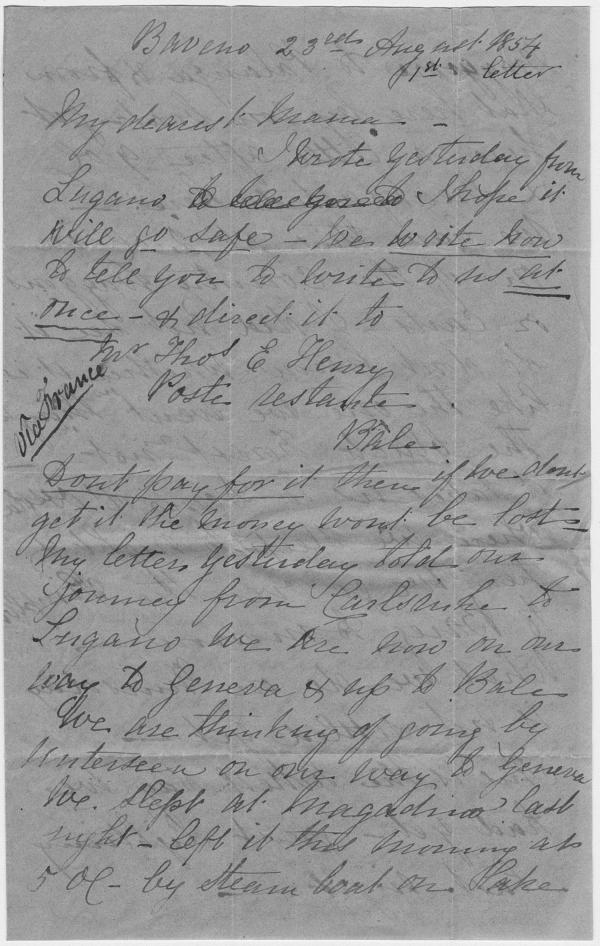 Baveno 23rd August 1854
1st letter
My dearest Mama -
I wrote yesterday from
Lugano I hope it
will go safe - We write now
to tell you to write to us at
once - & direct it to
Mr Thos E Henry
Poste restante
Bâle
via France
Dont pay for it then if we dont
get it the money wont be lost -
My letter yesterday told our
journey from Carlsruhe to
Lugano We are now on our
way to Geneva & up to Bale
We are thinking of going by
Unterseen on our way to Geneva
We slept at Magadino last
night - left it this morning at
5 OC - by steam boat on Lake